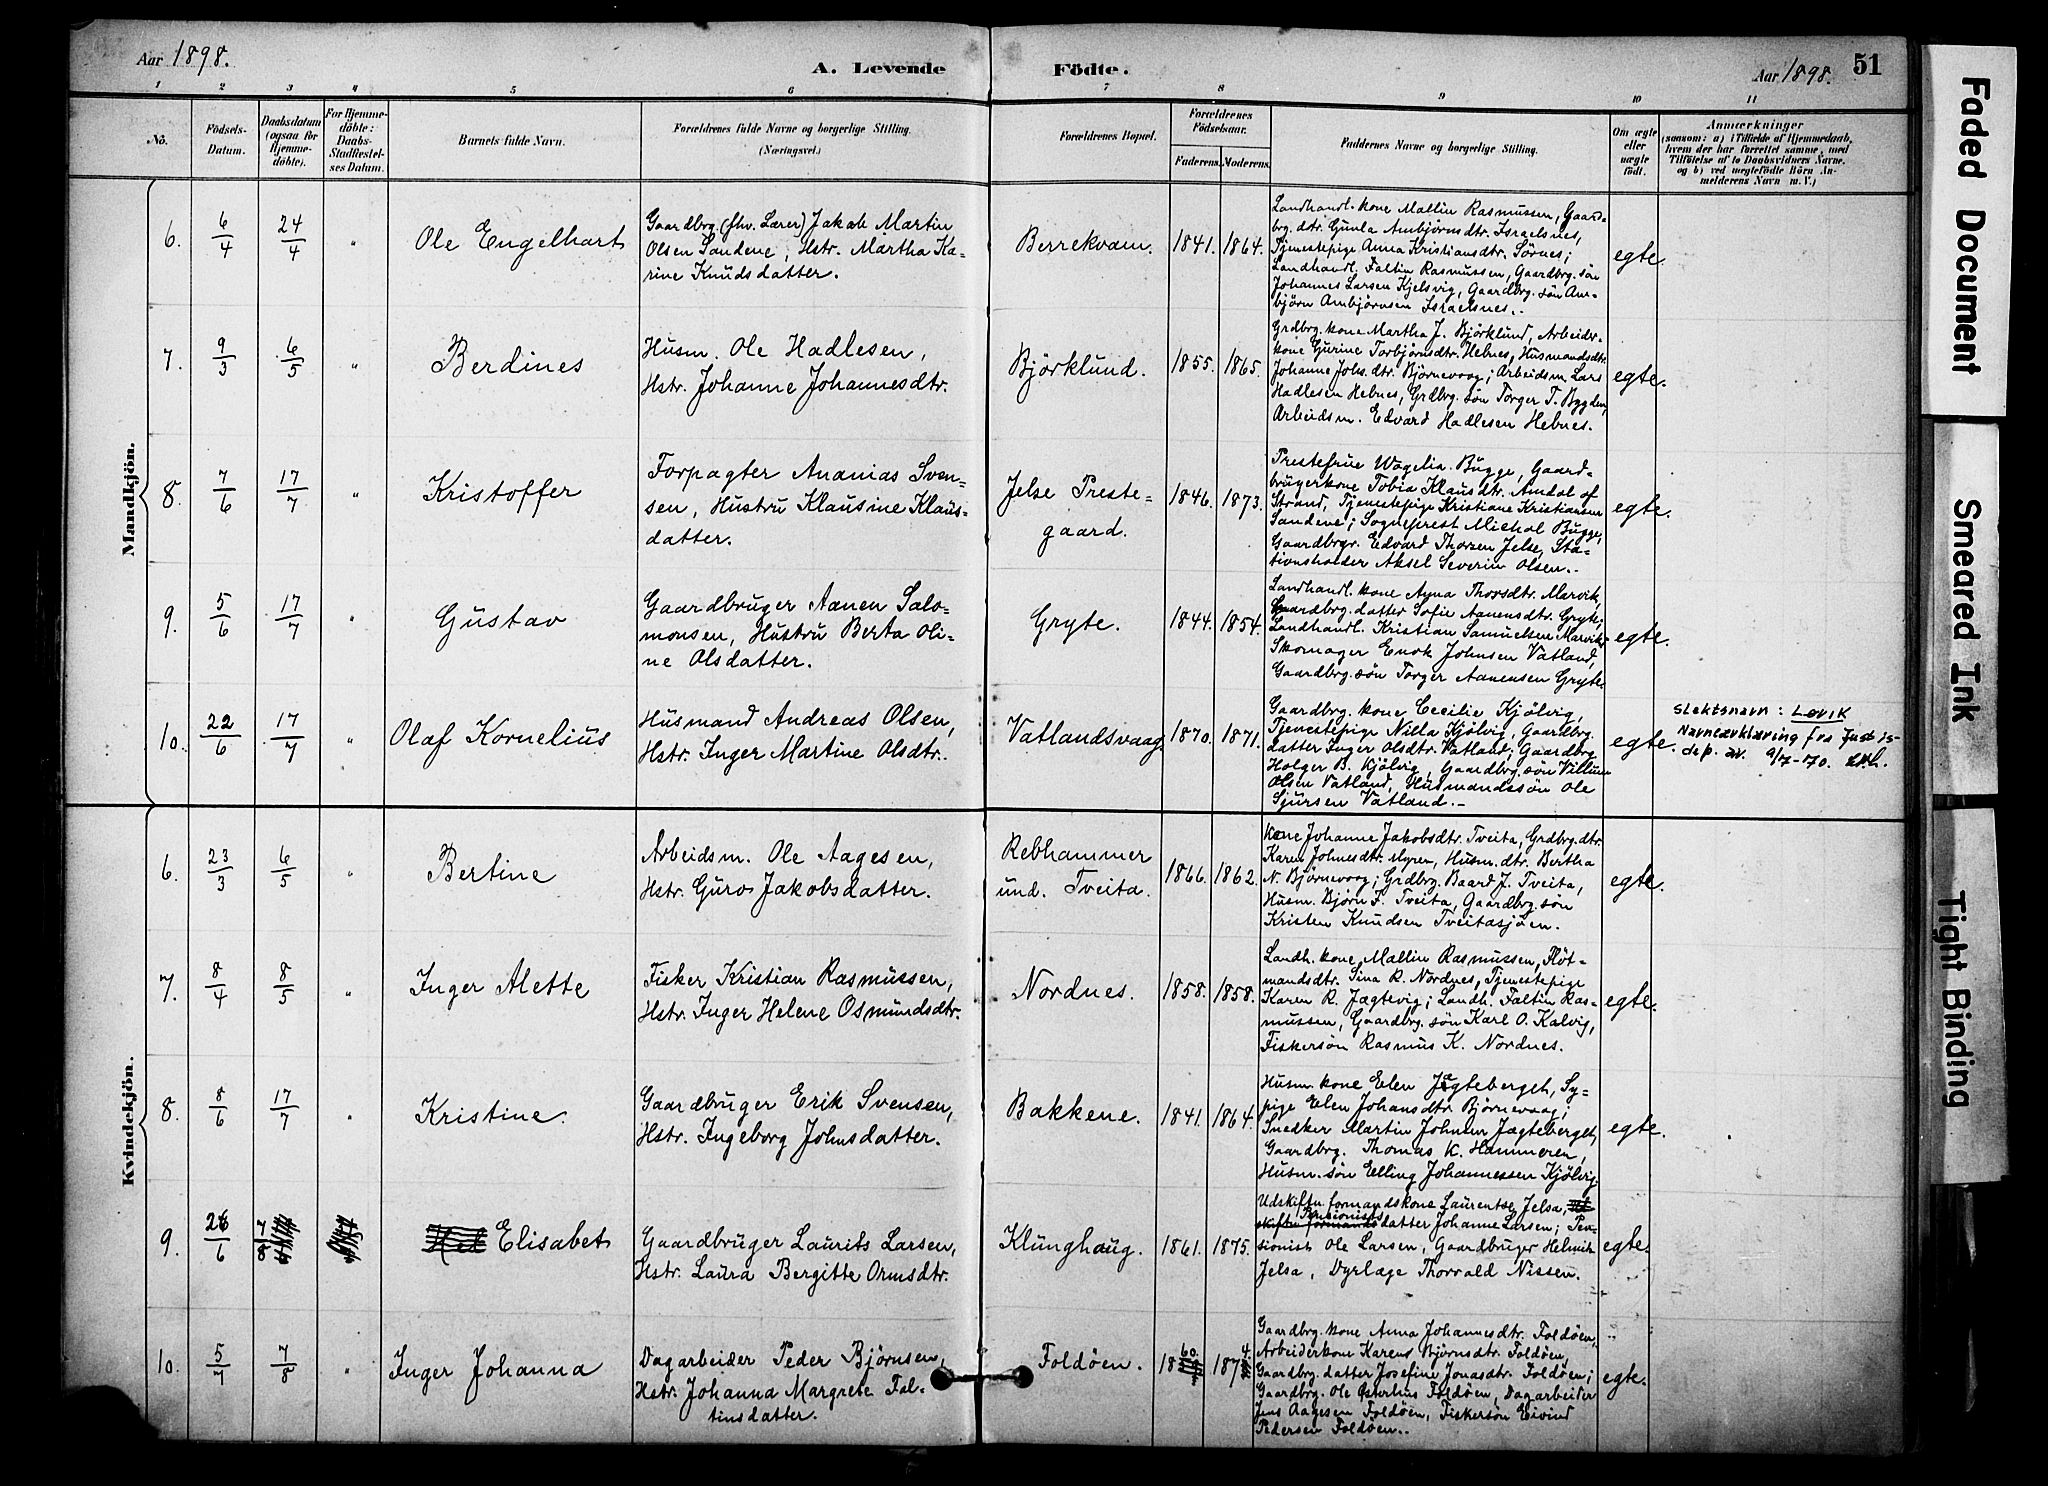 Aar 1898.
A. Levende Födte.
Aar 1898.
51
1 2 3 4 5 6 7 8 9 10 11
No.
Födsels-
Datum.
Daabsdatum
(ogsaa for
Hjemme-
döbte).
For Hjemme-
döbte:
Daabs-
Stadfæstel-
ses Datum.
Barnets fulde Navn.
Forældrenes fulde Navne og borgerlige Stilling.
(Næringsvei.)
Forældrenes Bopæl.
Forældrenes
Födselsaar.
Faderens. Moderens.
Faddernes Navne og borgerlige Stilling.
Om ægte
eller
uægte
födt.
Anmærkninger
(saasom: a) i Tilfælde af Hjemmedaab,
hvem der har forrettet samme, med
Tilföielse af to Daabsvidners Navne,
og b) ved uægtefödte Börn An-
melderens Navn m. V.)
Mandkjön.
6. 6/4 24/4 "
Ole Engelhart
Gaardbrg. (fhv. Lærer) Jakob Martin
Olsen Sandene, Hstr. Martha Ka-
rine Knudsdatter.
Berrekvam. 1841. 1864.
Landhandl. kone Mallin Rasmussen, Gaard-
brg. dtr. Gunla Ambjörnsdtr. Israelsnes,
Tjenestepige Anna Kristiansdtr. Sörnes;
Landhandl. Faltin Rasmussen, Gaardbrg. sön
Johannes Larsen Kjelsvig, Gaardbrg. sön Am-
björn Ambjörnsen Israelsnes.
egte.
7. 9/3 6/5 "
Berdines
Husm. Ole Hadlesen,
Hstr. Johanne Johannesdtr.
Björklund. 1855. 1865.
Grdbrg. kone Martha J. Björklund, Arbeider-
kone Gurine Torbjörnsdtr. Hebnes, Husmandsdtr.
Johanne Johs. dtr. Björnevaag; Arbeidsm. Lars
Hadlesen Hebnes, Grdbrg. sön Torger T. Bygden,
Arbeidsm. Edvard Hadlesen Hebnes.
egte.
8. 7/6 17/7 "
Kristoffer
Forpagter Ananias Sven-
sen, Hustru Klausine Klaus-
datter.
Jelse Preste-
gaard.
1846. 1873.
Prestefrue Wogelia Bugge, Gaard-
brugerkone Tobia Klausdtr. Amdal af
Strand, Tjenestepige Kristiane Kristiansen
Sandene; Sogneprest Michal Bugge,
Gaardbrgr. Edvard Thorsen Jelse, Sta-
tionsholder Aksel Severin Olsen.
egte.
9. 5/6 17/7 "
Gustav
Gaardbruger Aanen Salo-
monsen, Hustru Berta Oli-
ne Olsdatter.
Gryte. 1844. 1854.
Landhandl. kone Anna Thorsdtr. Marvik,
Gaardbrg. datter Sofie Aanensdtr. Gryte;
Landhandl. Kristian Samuelsen Marvik
Skomager Enok Johnsen Vatland,
Gaardbrg. sön Torger Aanensen Gryte.
egte.
10. 22/6 17/7 "
Olaf Kornelius
Husmand Andreas Olsen,
Hstr. Inger Martine Olsdtr.
Vatlandsvaag 1870. 1871.
Gaardbrg. kone Cecilie Kjölvig,
Tjenestepige Nilla Kjölvig, Gaardbrg.
datter Inger Olsdtr. Vatland; Gaardbrg
Holger B. Kjölvig, Gaardbrg. sön Villum
Olsen Vatland, Husmandssön Ole
Sjursen Vatland.
egte.
Slektsnavn: Løvik
Navneerklæring fra Justis-
dep. av. 9/7-70.
Kvindekjön.
6. 23/3 6/5 "
Bertine
Arbeidsm. Ole Aagesen,
Hstr. Guro Jakobsdatter.
Rebhammer
und. Tveita.
1866. 1862.
Kone Johanne Jakobsdtr. Tveita, Grdbrg. dtr.
Karen Johnsdtr. Myren, Husm. dtr. Bertha
N. Björnevaag; Grdbrg. Baard J. Tveita,
Husm. Björn F. Tveita, Gaardbrg. sön
Kristen Knudsen Tveitasjöen.
egte.
7. 8/4 8/5 "
Inger Alette
Fisker Kristian Rasmussen,
Hstr. Inger Helene Osmundsdtr.
Nordnes. 1858. 1858.
Landh. kone Mallin Rasmussen, Flöt-
mandsdtr. Sina R. Nordnes, Tjenestepige
Karen R. Jægtevig; Landh. Faltin Ras-
mussen, Gaardbrg. sön Karl O. Kalvig,
Fiskersön Rasmus K. Nordnes.
egte.
8. 8/6 17/7 "
Kristine.
Gaardbruger Erik Svensen,
Hstr. Ingeborg Johnsdatter.
Bakkene. 1841. 1864.
Husm. kone Elen Jægteberget, Sy-
pige Elen Johansdtr. Björnevaag;
Snedker Martin Johnsen Jægteberget,
Gaardbrg. Thomas K. Hammeren,
Husm. sön Elling Johannessen Kjölvig.
egte.
9. 26/6 7/8
Elisabet
Gaardbruger Laurits Larsen,
Hstr. Laura Bergitte Ormsdtr.
Klunghaug. 1861. 1875.
Udskiftn. formandskone Laurentse Jelsa,
Pensionists
datter Johanne Larsen; Pen-
sionist Ole Larsen, Gaardbruger Helmik
Jelsa, Dyrlæge Thorvald Nissen.
egte.
10. 5/7 7/8 "
Inger Johanna
Dagarbeider Peder Björnsen,
Hstr. Johanna Margrete Fal-
tinsdatter.
Foldöen. 1860. 1874.
Gaardbrg. kone Anna Johannesdtr. Foldöen,
Arbeiderkone Karens Björnsdtr. Foldöen,
Gaardbrg. datter Josefine Jonasdtr. Foldöen;
Gaardbrg. Ole Österhus Foldöen, Dagarbeider
Jens Aagesen Foldöen, Fiskersön Eivind
Pedersen Foldöen.
egte.
Faded Document
Smeared Ink
Tight Binding